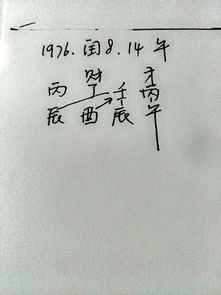 1976.闰8.14 午
财 才
丙 丁 壬 丙
辰 酉 辰 午